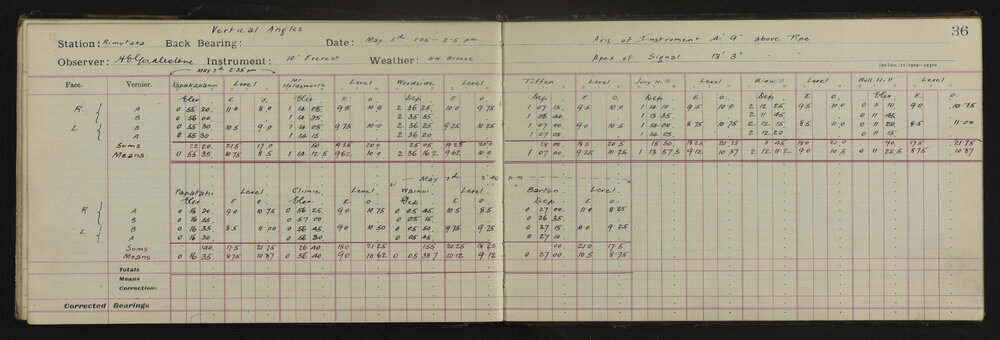 36
Vertical Angles.
Station: Rimutaka Back Bearing: Date: May 5th 1·25 – 2·5 pm Axis of Instrument 4' 9" above Pipe
Observer: H E Girdlestone Instrument: 10" Everest Weather: N.W. Breeze Apex of Signal 13' 3" "
May 7th 2·35 pm
Face. Vernier. Kapakapanui Level Mt Holdsworth Level Woodside Level Titten Level Jury Hill Level Bidwill Level Bull Hill Level
Elev. E O. Elev. E O. Dep. E O. Dep. E O. Dep. E O. Dep. E O. Dep. E O.
R A 0 55 20. 11·0 8·0 1 14 05. 9·5 10·0 2 36 25. 10·0 9·75 1 07 15. 9·5 10·0 1 14 10. 9·5 10·0 2 12 25. 9·5 10·0 0 11 10. 9·0 10·75
B 0 56 00. 1 14 25. 2 35 55. 1 06 40. 1 13 35. 2 11 45. 0 11 45.
L B 0 55 30. 10·5 9·0 1 14 05. 9·75 10·0 2 36 25. 9·25 10·25 1 07 00. 9·0 10·5 1 14 00. 8·75 10·75 2 12 15. 8·5 11·0 0 11 20. 8·5 11·00
A 0 55 30. 1 14 15. 2 36 20. 1 07 05. 1 14 05. 2 12 20. 0 11 15.
Sums 22 20. 21·5 17·0 50 19·25 20·0 25 05. 19·25 20·0 28 00. 18·5 20·5 15 50. 18·25 20·75 8 45. 18·0 21·0 90. 17·5 21·75
Means. 0 55 35. 10·75 8·5 1 14 12·5 9·62 10·0 2 36 16·2 9·62 10·0 1 07 00. 9·25 10·25 1 13 57·5 9·12 10·37 2 12 11·2 9·0 10·5 0 11 22·5 8·75 10·87
May 7th 2·40 pm
Papatahi Level Climie Level Wainui Level Barton Level
Elev. E O. Elev. E O. Dep. E O. Dep. E O.
R A 0 16 20. 9·0 10·75 0 56 25. 9·0 10·75 0 05 45. 10·5 8·5 0 27 00. 11·0 8·25
B 0 16 55. 0 57 00. 0 05 15. 0 26 35.
L B 0 16 35. 8·5 11·00 0 56 45. 9·0 10·50 0 05 50. 9·75 9·75 0 27 15. 10·0 9·25
A 0 16 30. 0 56 30. 0 05 45. 0 27 10.
Sums 140. 17·5 21·75 26 40. 18·0 21·25 155 20·25 18·25 00. 21·0 17·5
Means 0 16 35. 8·75 10·87 0 56 40. 9·0 10·62 0 05 38·7 10·12 9·12 0 27 00. 10·5 8·75
Totals
Means
Corrections
Corrected Bearings